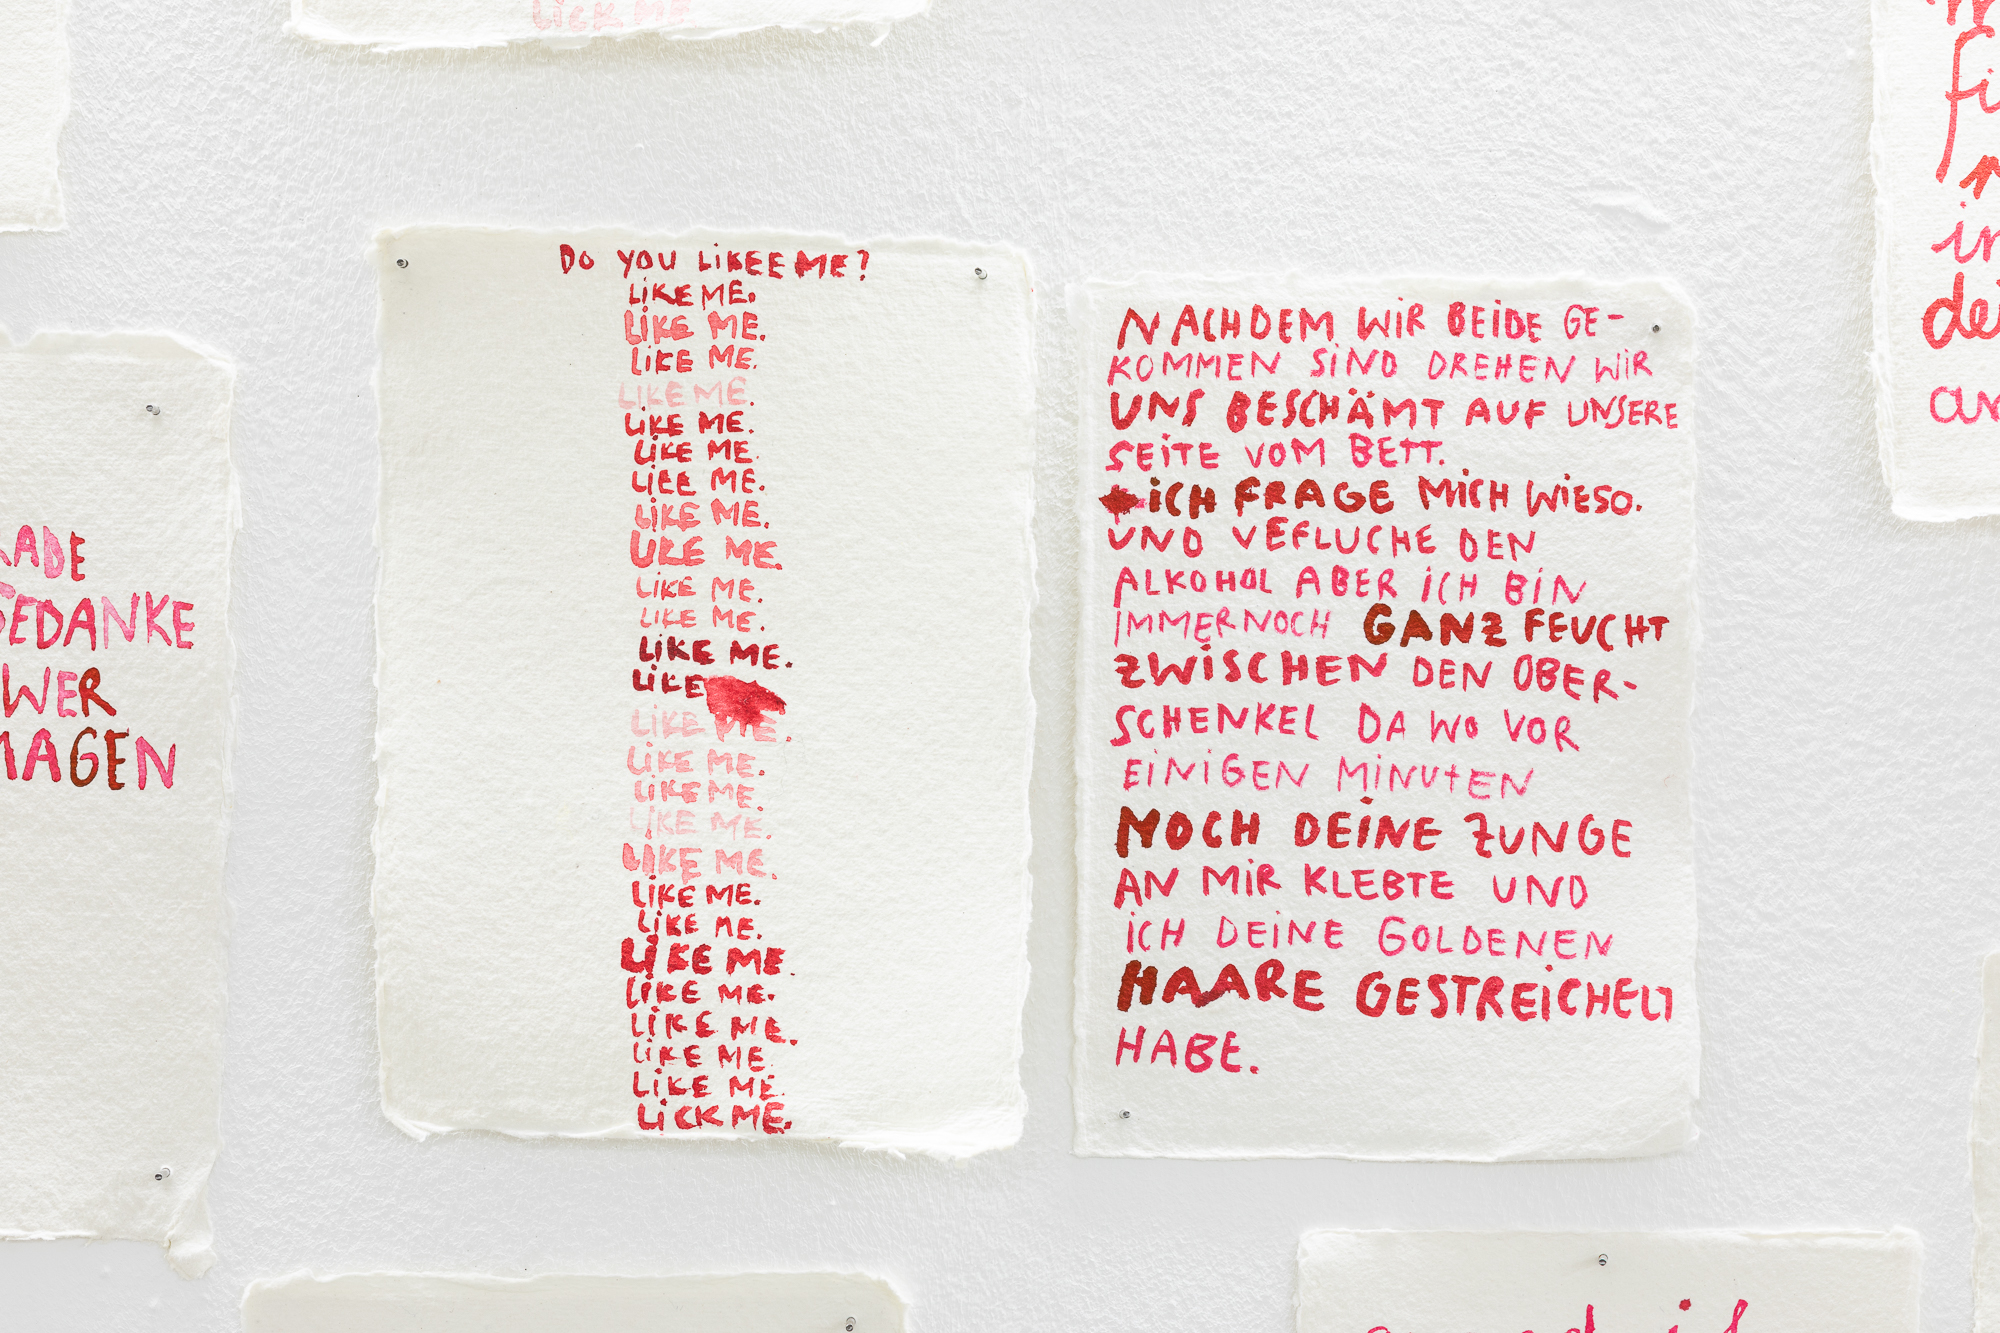 LICK ME
DO YOU LIKEE ME?
LIKE ME.
LIKE ME.
LIKE ME.
LIKE ME.
LIKE ME.
LIKE ME.
LIKE ME.
LIKE ME.
LIKE ME.
LIKE ME.
LIKE ME.
LIKE ME.
LIKE
LIKE ME.
LIKE ME.
LIKE ME.
LIKE ME.
LIKE ME.
LIKE ME.
LIKE ME.
LIKE ME.
LIKE ME.
LIKE ME.
LIKE ME.
LIKE ME.
LICK ME.
NACHDEM WIR BEIDE GE-
KOMMEN SIND DREHEN WIR
UNS BESCHÄMT AUF UNSERE
SEITE VOM BETT.
ICH FRAGE MICH WIESO.
UND VEFLUCHE DEN
ALKOHOL ABER ICH BIN
IMMERNOCH GANZ FEUCHT
ZWISCHEN DEN OBER-
SCHENKEL DA WO VOR
EINIGEN MINUTEN
NOCH DEINE ZUNGE
AN MIR KLEBTE UND
ICH DEINE GOLDENEN
HAARE GESTREICHELT
HABE.
GEDANKE
WER
MAGEN